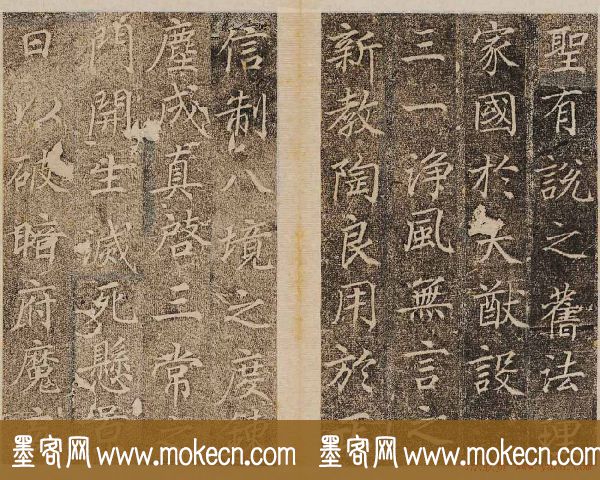 聖有說之舊法理
家國於大猷設
三一淨風無言之
新教陶良用於
信制八境之度鍊
塵成真啓三常
門開生滅死懸景
日以破暗府魔
墨客网 www.mokecn.com 墨客网 www.mokecn.com